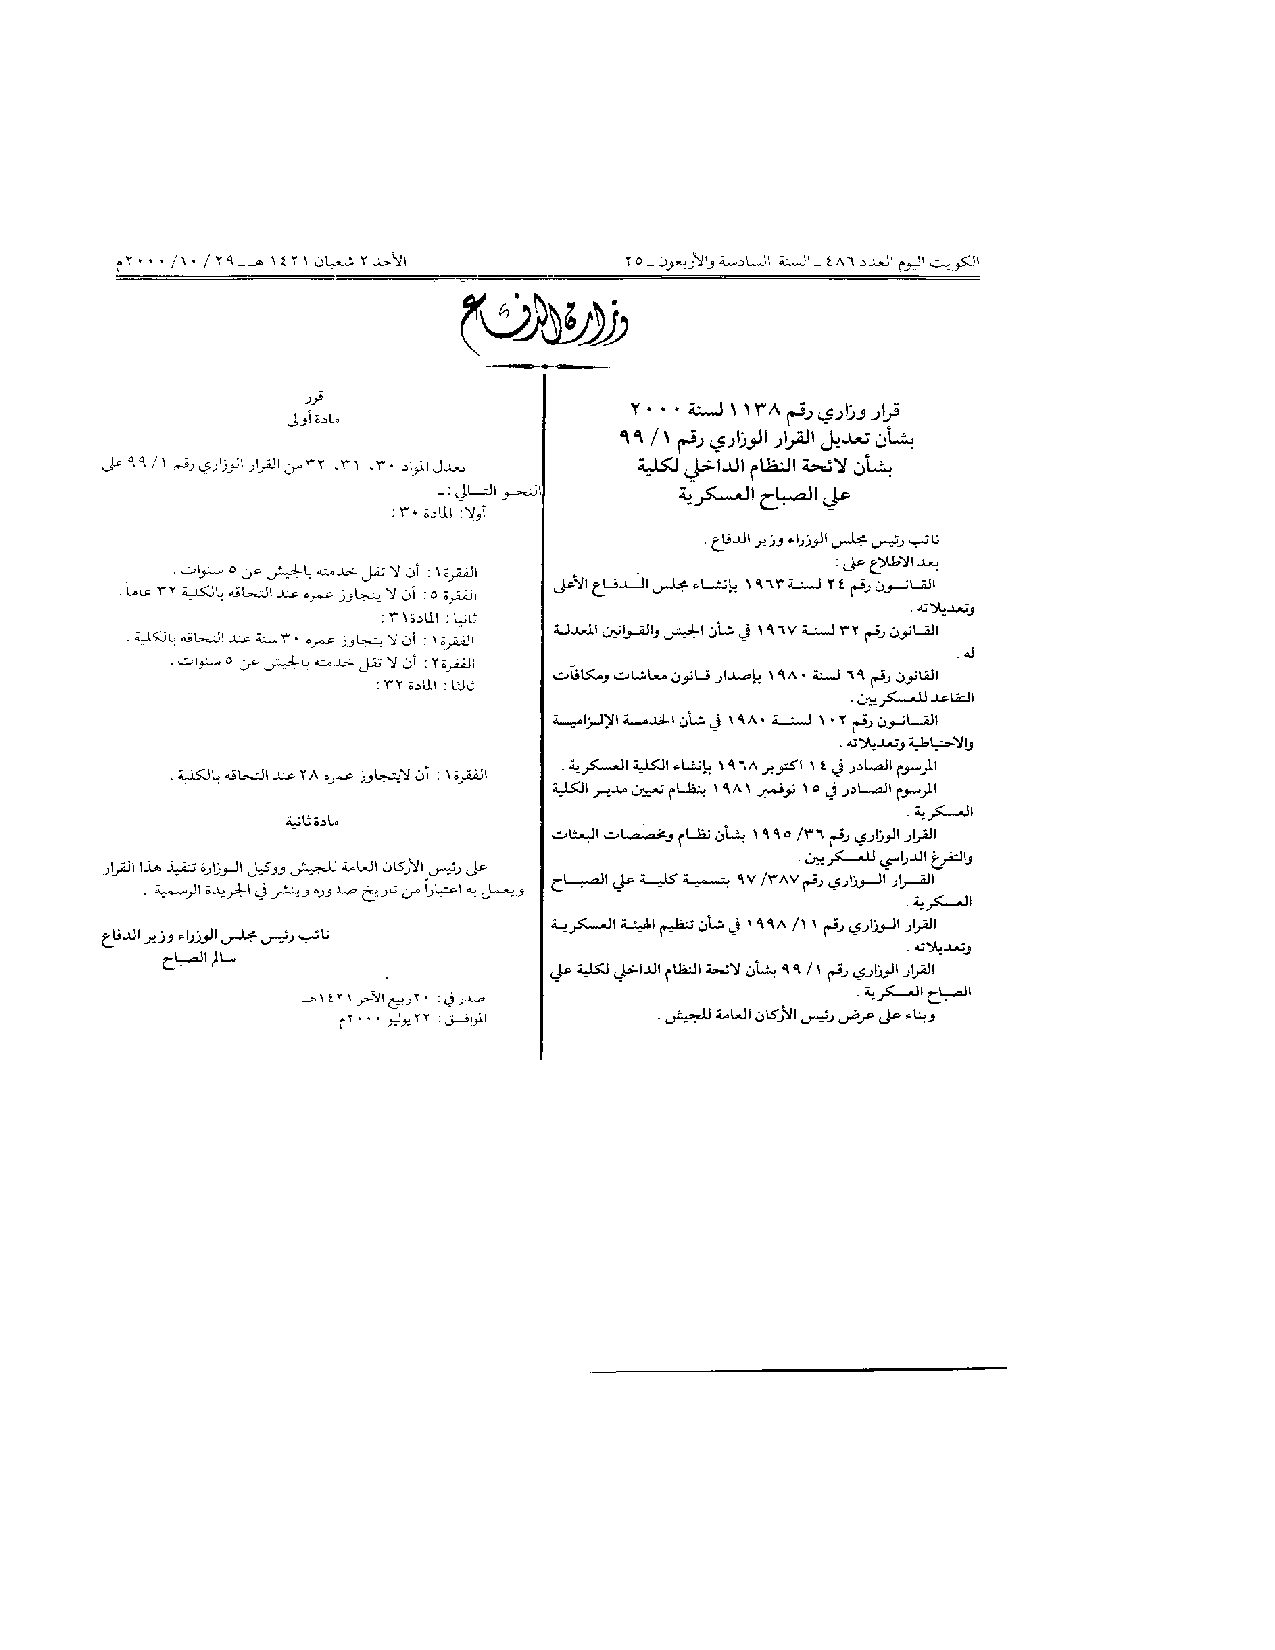 الكويت اليوم العدد ٤٨٦ ـ السنة السادسة والأربعون ـ ٢٥
الأحد ٢ شعبان ١٤٢١ هـ ـ ٢٩ / ١٠ / ٢٠٠٠م
وزارة الدفاع
قرار وزاري رقم ١١٣٨ لسنة ٢٠٠٠
بشأن تعديل القرار الوزاري رقم ١ / ٩٩
بشأن لائحة النظام الداخلي لكلية
علي الصباح العسكرية
نائب رئيس مجلس الوزراء وزير الدفاع .
بعد الاطلاع على :
القانون رقم ٢٤ لسنة ١٩٦٣ بإنشاء مجلس الدفاع الأعلى
وتعديلاته .
القانون رقم ٣٢ لسنة ١٩٦٧ في شأن الجيش والقوانين المعدلة
له .
القانون رقم ٦٩ لسنة ١٩٨٠ بإصدار قانون معاشات ومكافآت
التقاعد للعسكريين .
القانون رقم ١٠٢ لسنة ١٩٨٠ في شأن الخدمة الإلزامية
والاحتياطية وتعديلاته .
المرسوم الصادر في ١٤ اكتوبر ١٩٦٨ بإنشاء الكلية العسكرية .
المرسوم الصادر في ١٥ نوفمبر ١٩٨١ بنظام تعيين مدير الكلية
العسكرية .
القرار الوزاري رقم ٣٦ / ١٩٩٥ بشأن نظام ومخصصات البعثات
والتفرغ الدراسي للعسكريين .
القرار الوزاري رقم ٣٨٧ / ٩٧ بتسمية كلية علي الصباح
العسكرية .
القرار الوزاري رقم ١١ / ١٩٩٨ في شأن تنظيم الهيئة العسكرية
وتعديلاته .
القرار الوزاري رقم ١ / ٩٩ بشأن لائحة النظام الداخلي لكلية علي
الصباح العسكرية .
وبناء على عرض رئيس الأركان العامة للجيش .
قرر
مادة أولى
يعدل المواد ٣٠، ٣١، ٣٢ من القرار الوزاري رقم ١ / ٩٩ على
النحو التالي : ـ
أولا: المادة ٣٠ :
الفقرة ١ : أن لا تقل خدمته بالجيش عن ٥ سنوات .
الفقرة ٥ : أن لا يتجاوز عمره عند التحاقه بالكلية ٣٢ عاماً .
ثانيا : المادة ٣١ :
الفقرة ١ : أن لا يتجاوز عمره ٣٠ سنة عند التحاقه بالكلية .
الفقرة ٢ : أن لا تقل خدمته بالجيش عن ٥ سنوات .
ثالثا : المادة ٣٢ :
الفقرة ١ : أن لايتجاوز عمره ٢٨ عند التحاقه بالكلية .
مادة ثانية
على رئيس الأركان العامة للجيش ووكيل الوزارة تنفيذ هذا القرار
ويعمل به اعتباراً من تاريخ صدوره وينشر في الجريدة الرسمية .
نائب رئيس مجلس الوزراء وزير الدفاع
سالم الصباح
صدر في : ٢٠ ربيع الآخر ١٤٢١هـ
الموافق : ٢٢ يوليو ٢٠٠٠م